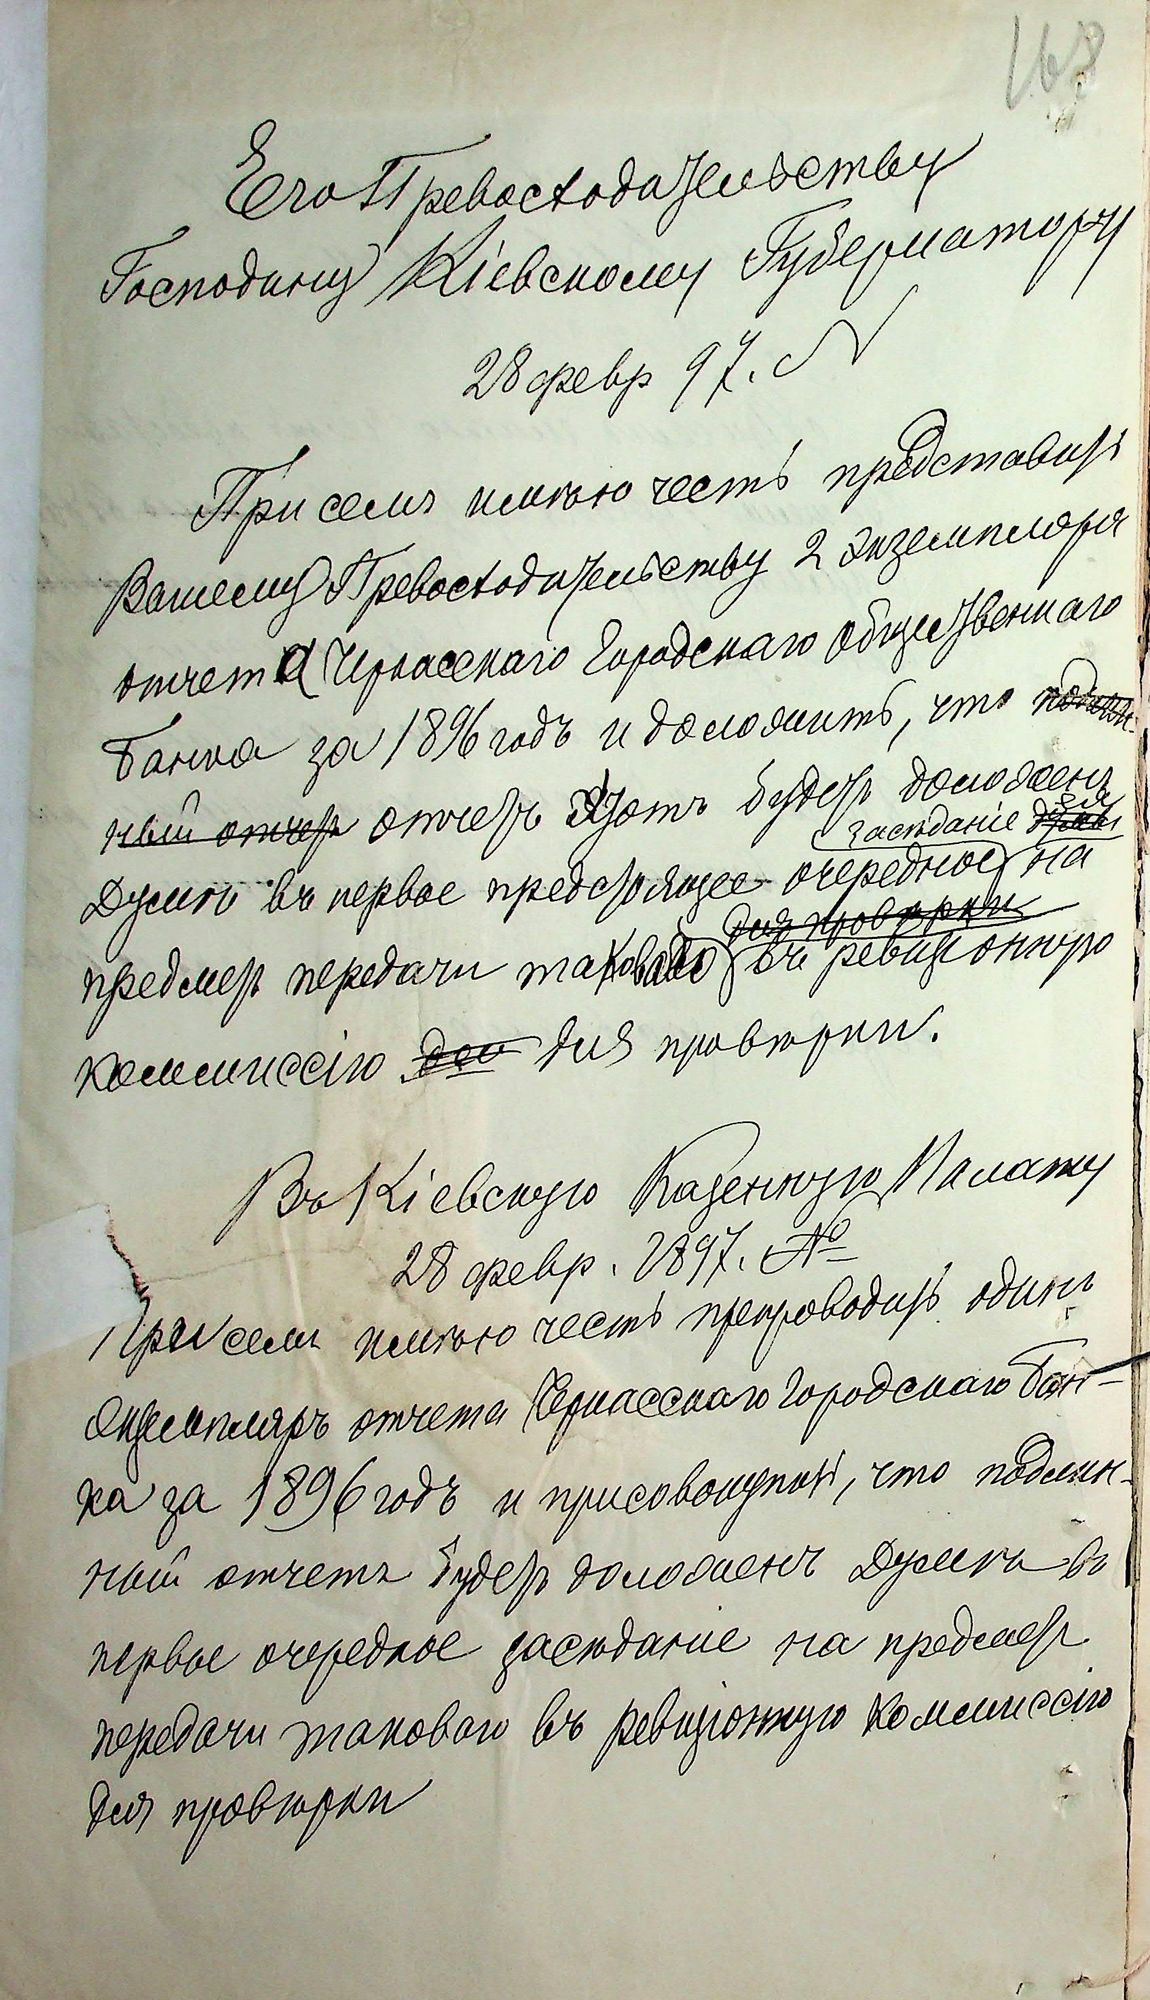 168
Его Превосходительству
Господину Кіевскому Губернатору
28 февр 97. N
При семъ имѣю честь представить
Вашему Превосходительству 2 экземпляра
отчета Черкасскаго Городскаго Общественнаго
Банка за 1896 годъ и доложить, что подлин-
ный отчетъ отчетъ этотъ будетъ доложенъ
засѣданіе
Думѣ въ первое предстоящее очередное на
для провѣрки
предметъ передачи таковаго въ ревизіонную
коммиссію для провѣрки.
Въ Кіевскую Казенную Палату
28 февр. 1897. №
При семъ имѣю честь препроводить одинъ
экземпляръ отчета Черкасскаго Городскаго Бан-
ка за 1896 годъ и присовокупить, что подлин-
ный отчетъ будетъ доложенъ Думѣ въ
первое очередное засѣданіе на предметъ
передачи таковаго въ ревизіонную коммиссію
для провѣрки